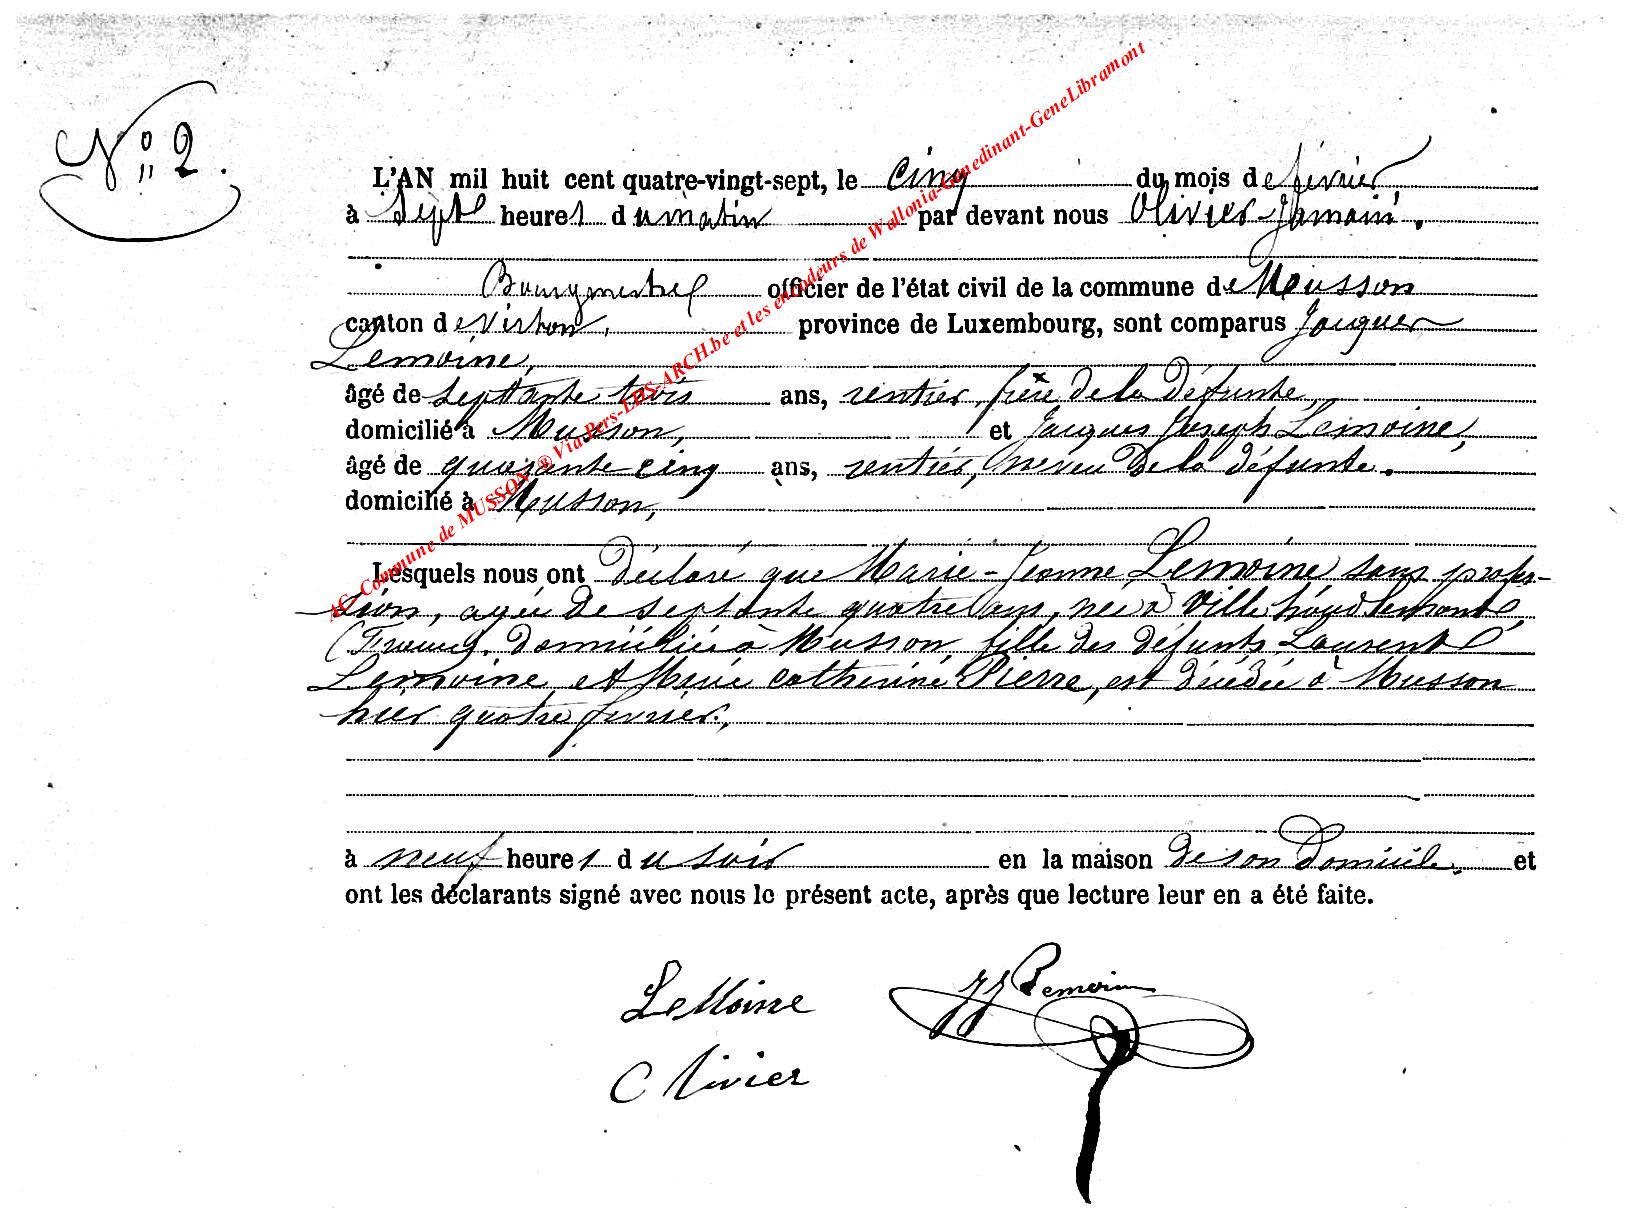 N° 2.
L'AN mil huit cent quatre-vingt-sept, le cinq du mois de février,
à sept heures du matin par devant nous Olivier Jamain.
Bourgmestre officier de l'état civil de la commune de Musson
canton de Virton, province de Luxembourg, sont comparus Jacques
Lemoine,
âgé de septante trois ans, rentier, frère de la défunte,
domicilié à Musson, et Jacques Joseph Lemoine,
âgé de quarante cinq ans, rentier, neveu de la défunte.
domicilié à Musson,
Lesquels nous ont déclaré que Marie-Jeanne Lemoine sans profes-
sion, agée de septante quatre ans, née à Ville houdlemont
(France). domiciliée à Musson, fille des défunts Laurent
Lemoine, et Marie Catherine Pierre, est décédée à Musson
hier quatre février,
à neuf heures du soir en la maison de son domicile, et
ont les déclarants signé avec nous le présent acte, après que lecture leur en a été faite.
LeMoine JJ Lemoine
Olivier
AG-Commune de MUSSON ® Via Pers-LDS-ARCH.be et les encodeurs de Wallonia-Genedinant-GeneLibramont